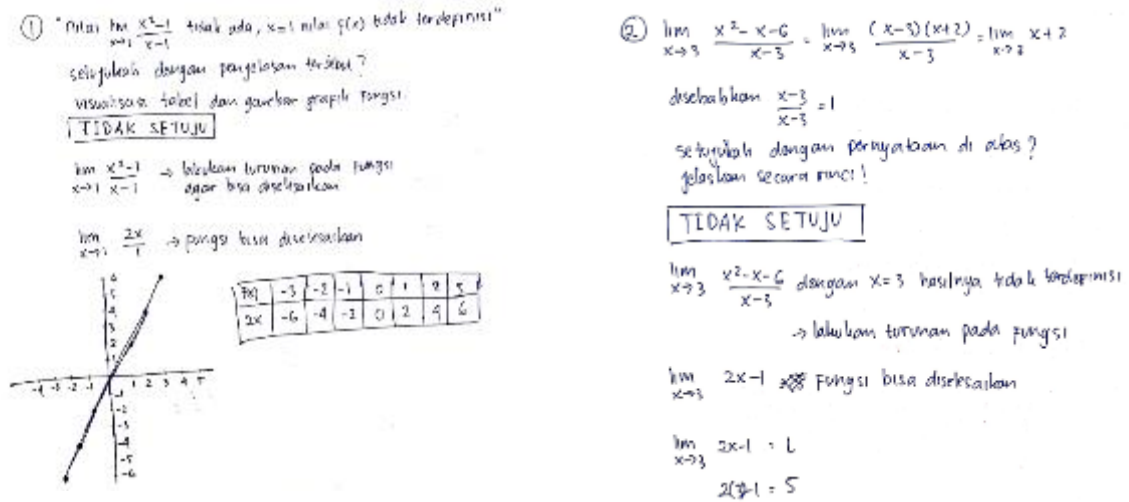 ① "Nilai lim x→1 x²-1/x-1 tidak ada, x=1 nilai f(x) tidak terdefinisi"
setujukah dengan penjelasan tersebut?
visualisasi tabel dan gambar grafik fungsi
TIDAK SETUJU
lim x→1 x²-1/x-1 → lakukan turunan pada fungsi
agar bisa diselesaikan
lim x→1 2x/1 → fungsi bisa diselesaikan
6
5
4
3
2
1
-4 -3 -2 -1 1 2 3 4 5
-1
-2
-3
-4
-5
-6
f(x) -3 -2 -1 0 1 2 3
2x -6 -4 -2 0 2 4 6
② lim x→3 x²-x-6/x-3 = lim x→3 (x-3)(x+2)/x-3 = lim x→3 x+2
disebabkan x-3/x-3 = 1
setujukah dengan pernyataan di atas?
jelaskan secara rinci!
TIDAK SETUJU
lim x→3 x²-x-6/x-3 dengan x=3 hasilnya tidak terdefinisi
→ lakukan turunan pada fungsi
lim x→3 2x-1 Fungsi bisa diselesaikan
lim x→3 2x-1 = L
2(3)-1 = 5